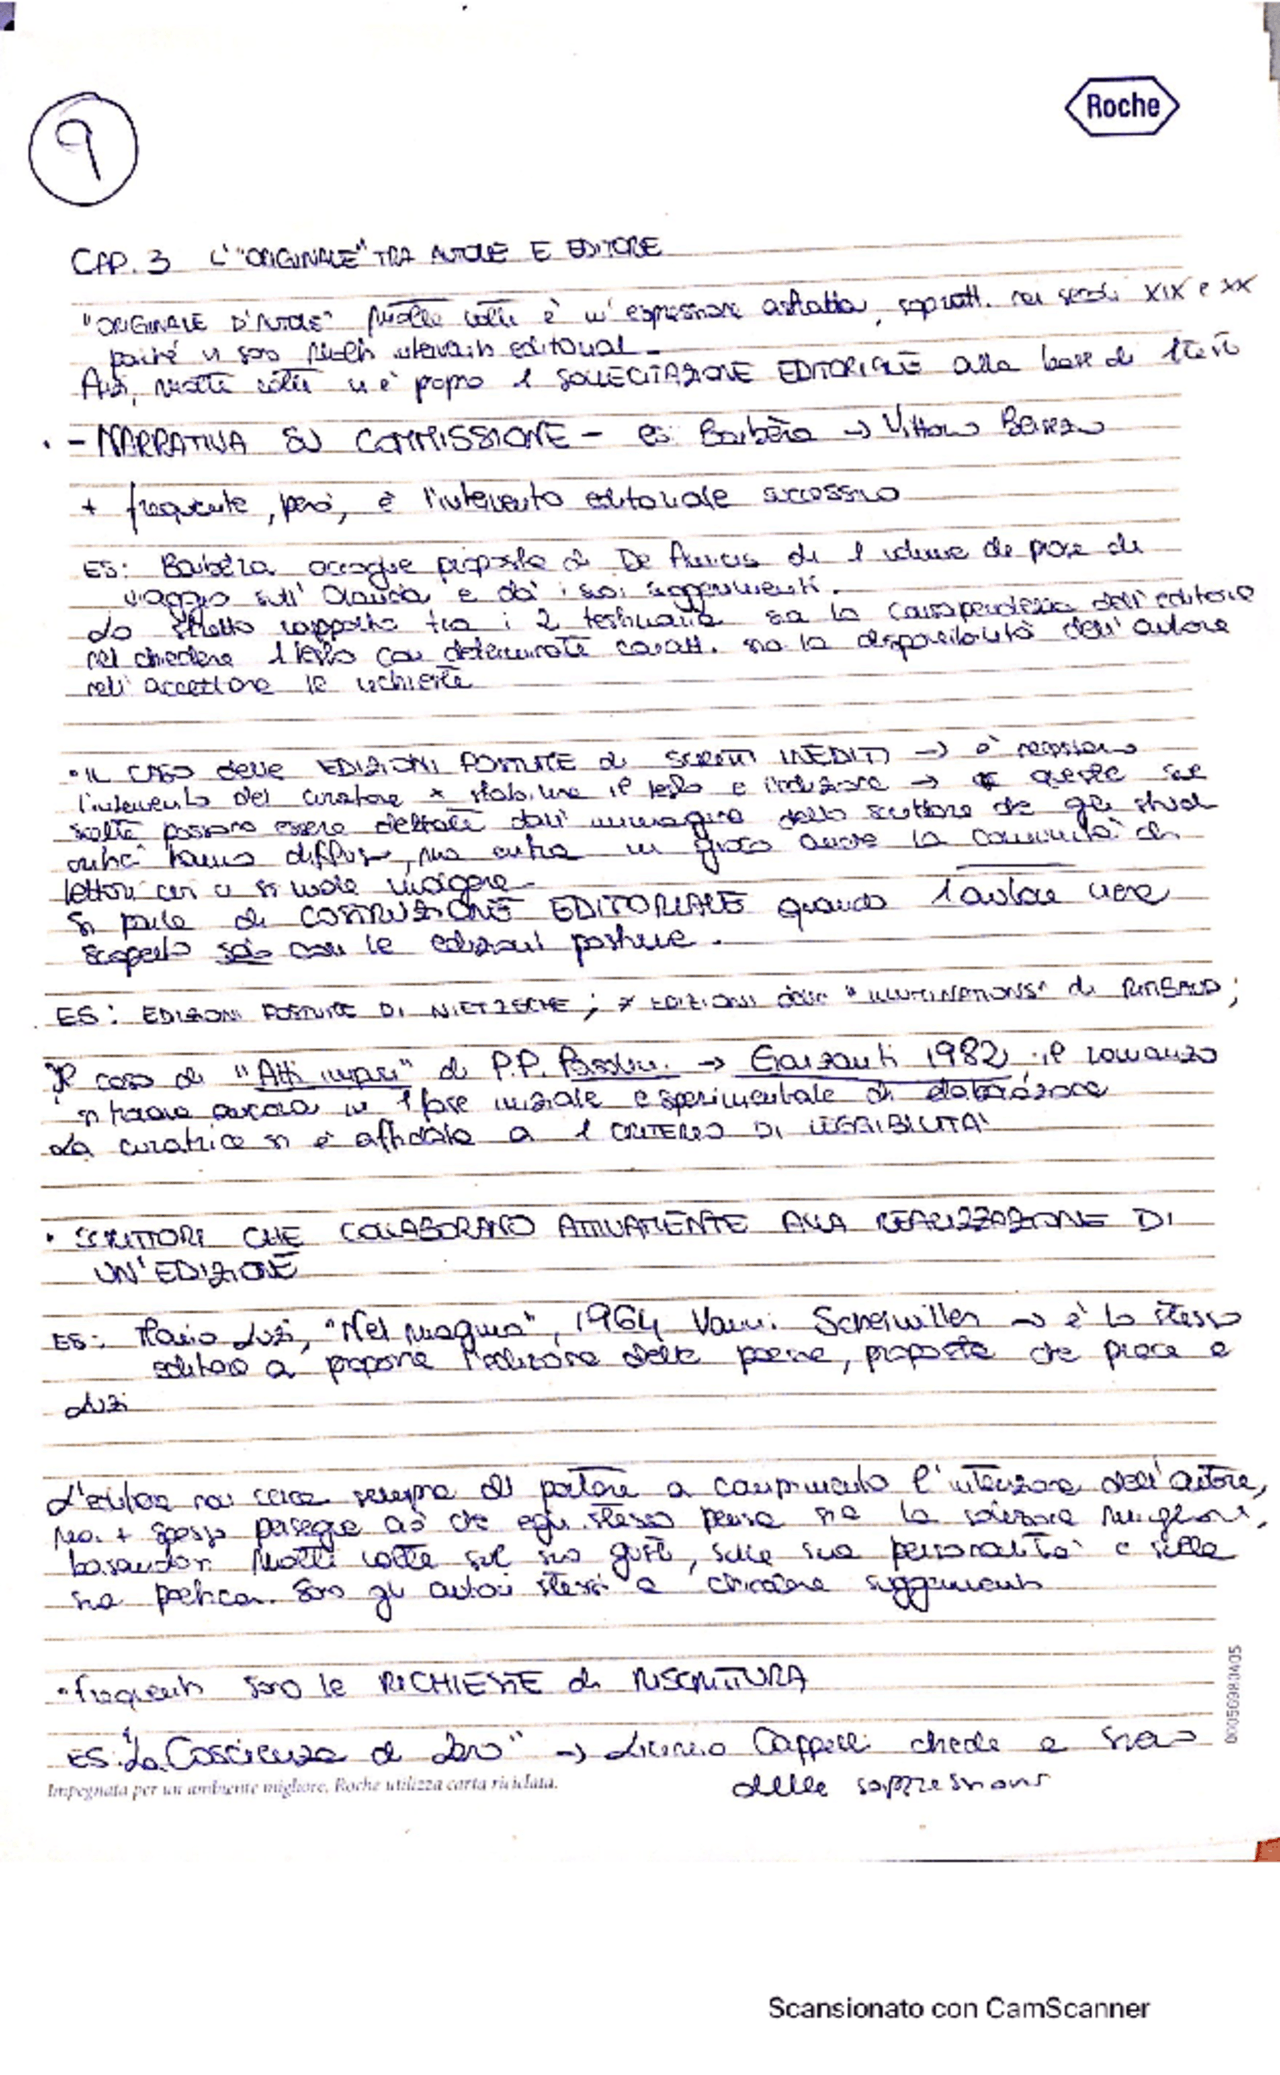 9
Roche
CAP. 3 L'"ORIGINALE" TRA AUTORE E EDITORE
"ORIGINALE D'AUTORE" molte volte è un'espressione astratta, sopratt. nei secoli XIX e XX
poiché vi sono molti interventi editoriali.
Anzi, molte volte vi è proprio 1 SOLLECITAZIONE EDITORIALE alla base di 1 testo
• - NARRATIVA SU COMMISSIONE - es: Barbèra → Vittorio Bersezio
+ frequente, però, è l'intervento editoriale successivo
ES: Barbèra accoglie proposta di De Amicis di 1 volume di prose di
viaggio sull'Olanda e dà i suoi suggerimenti.
Lo stretto rapporto tra i 2 testimonia sia la corrispondenza dell'editore
nel chiedere 1 testo con determinate caratt. sia la disponibilità dell'autore
nell'accettare le richieste
• IL CASO delle EDIZIONI POSTUME di SCRITTI INEDITI → è necessario
l'intervento del curatore x stabilire il testo e l'edizione → queste sue
scelte possono essere dettate dall'immagine dello scrittore che gli studi
critici hanno diffuso, ma entra in gioco anche la comunità di
lettori cui ci si vuole rivolgere.
Si parla di COSTRUZIONE EDITORIALE quando l'autore viene
scoperto solo con le edizioni postume.
ES: EDIZIONI POSTUME DI NIETZSCHE; EDIZIONI delle "ILLUMINATIONS" di RIMBAUD;
Il caso di "Atti impuri" di P.P. Pasolini → Garzanti 1982 il romanzo
si trova ancora in 1 fase iniziale e sperimentale di elaborazione
La curatrice si è affidata a 1 CRITERIO DI LEGGIBILITÀ
• SCRITTORI CHE COLLABORANO ATTIVAMENTE ALLA REALIZZAZIONE DI
UN'EDIZIONE
ES: Mario Luzi, "Nel magma", 1964 Vanni Scheiwiller → è lo stesso
editore a proporre l'edizione delle poesie, proposta che piace a
Luzi
L'editore non cerca sempre di portare a compimento l'intenzione dell'autore,
ma + spesso persegue ciò che egli stesso pensa sia la soluzione migliore,
basandosi molte volte sul suo gusto, sulla sua personalità e sulla
sua poetica. Sono gli autori stessi a chiedere suggerimenti
• Frequenti sono le RICHIESTE di RISCRITTURA
ES. "La Coscienza di Zeno" → Licinio Cappelli chiede a Svevo
delle soppressioni
Impegnata per un ambiente migliore, Roche utilizza carta riciclata.
Scansionato con CamScanner